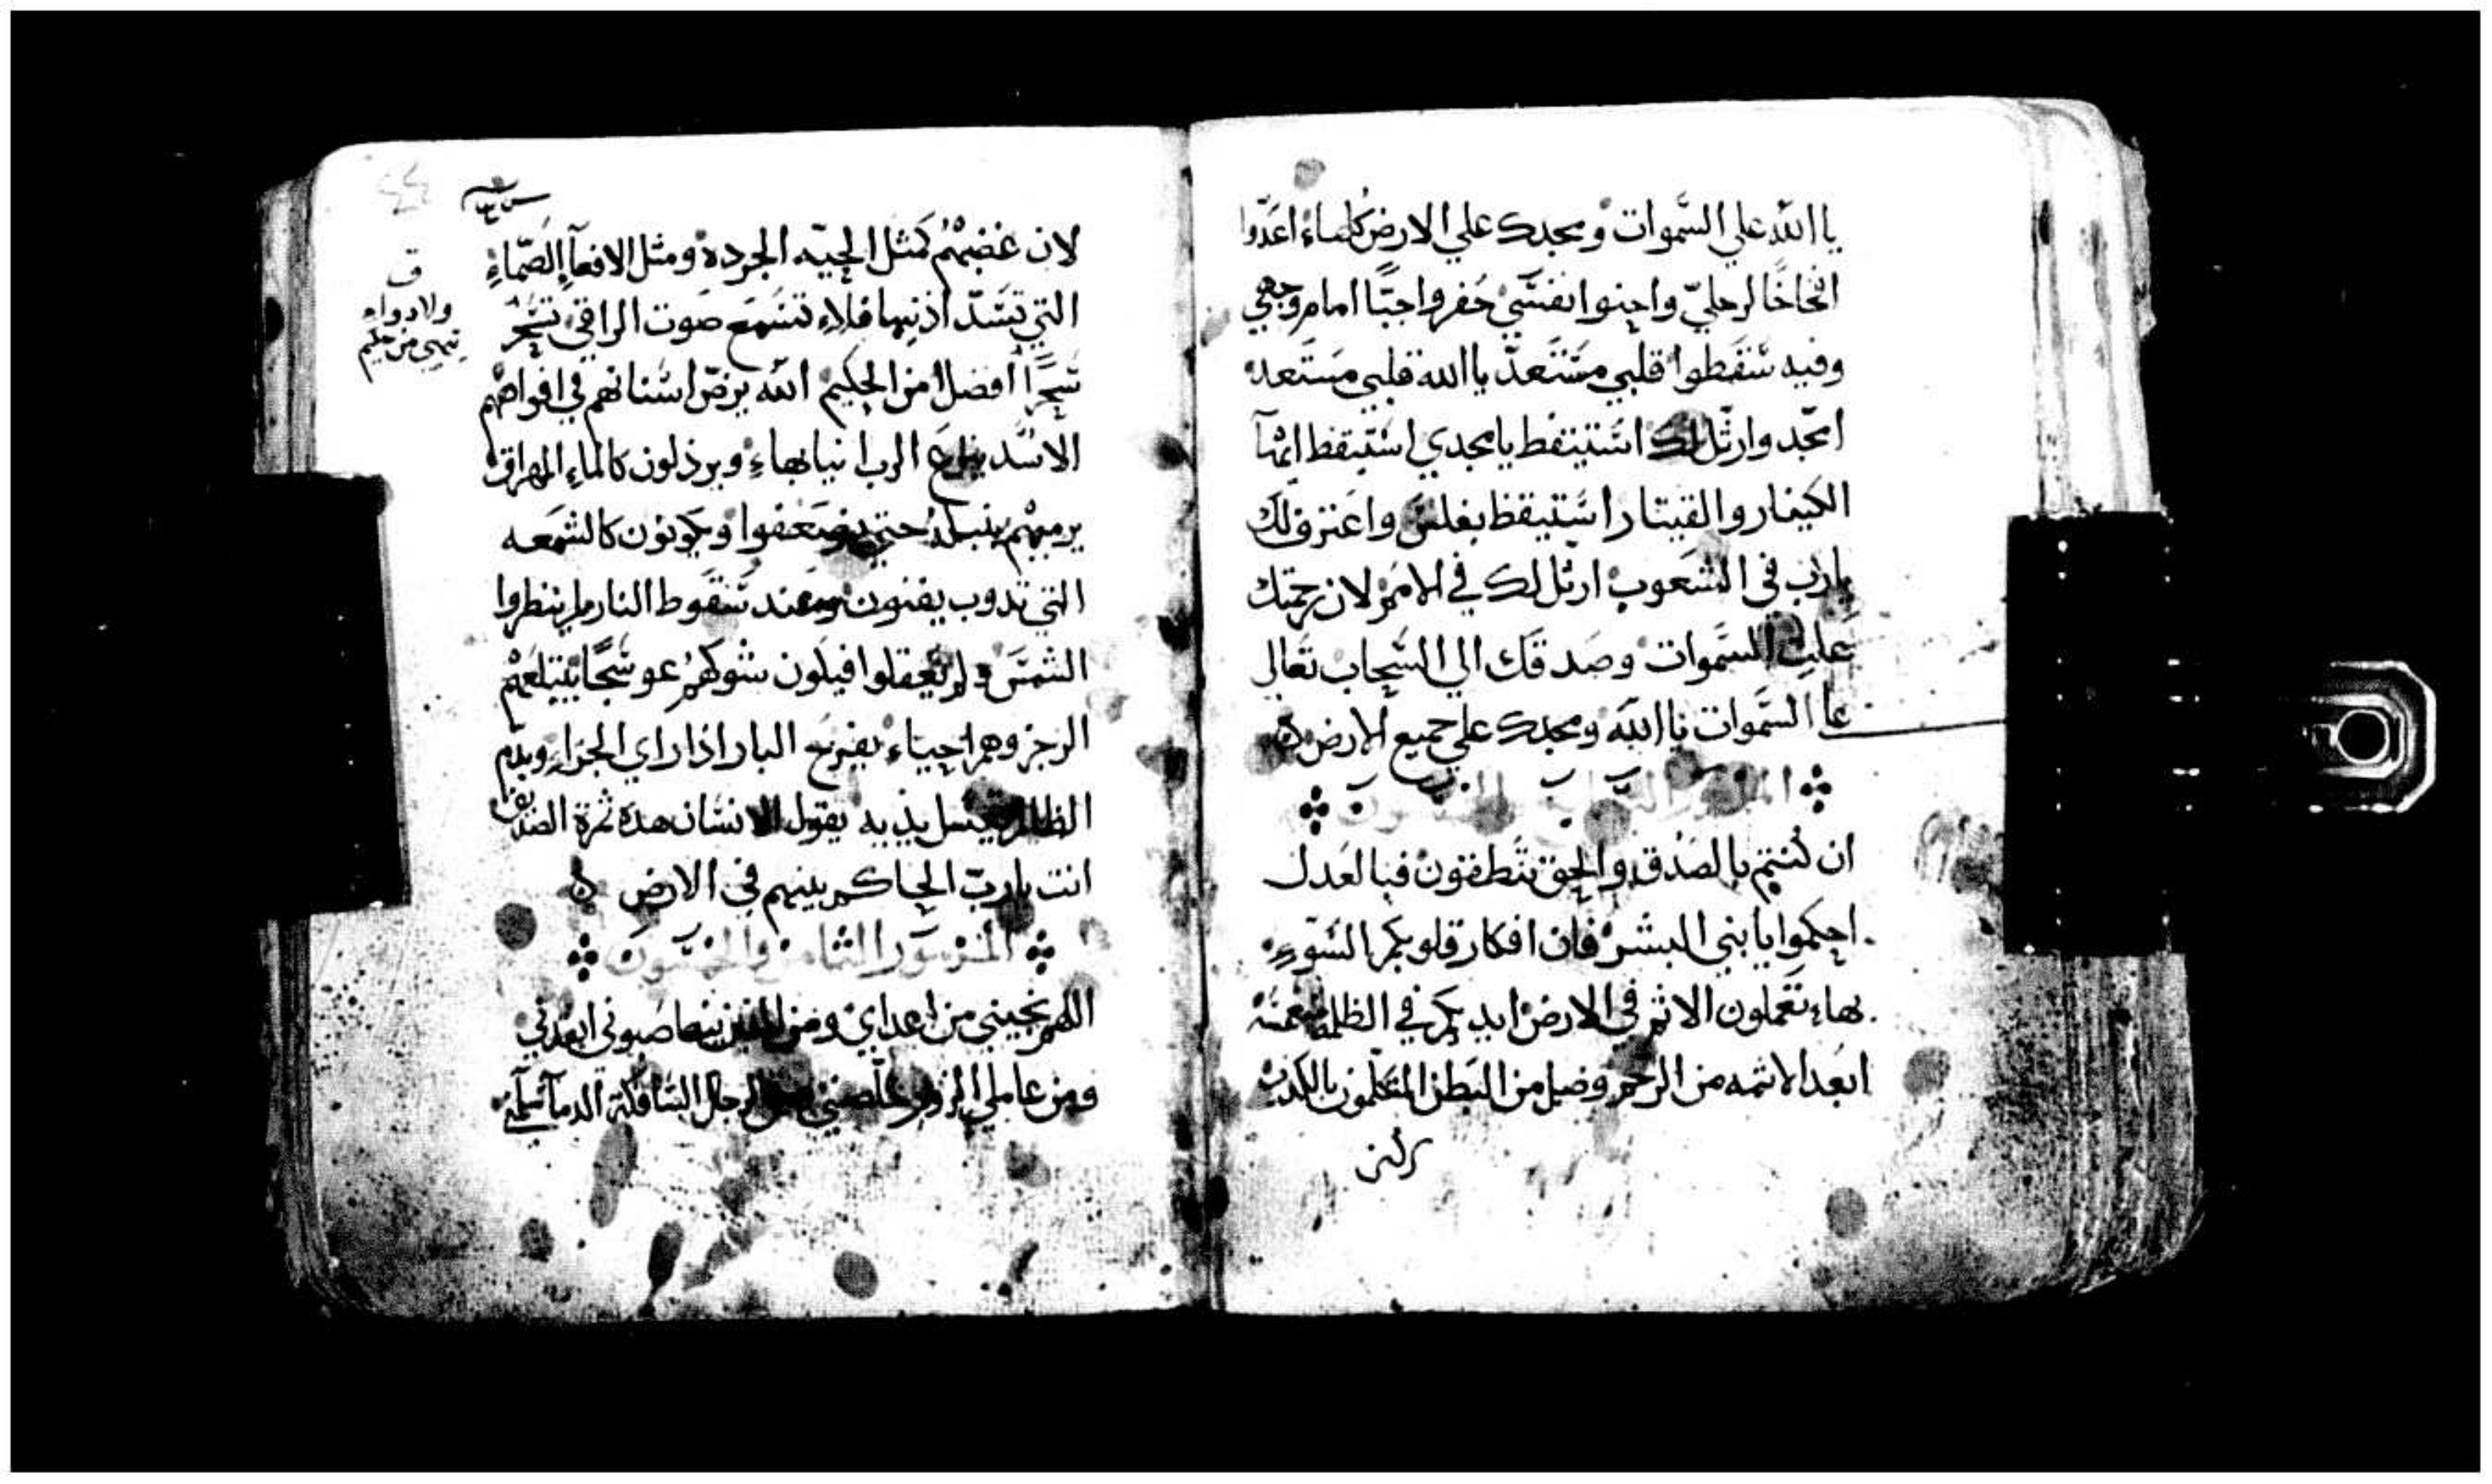 يا الله علي السموات ومجدك علي الارض كلها اعدوا
افخاخا لرجليّ واحنوا نفسي حفروا جبّا امام وجهي
وفيه سقطوا قلبي مستعدّ يا الله قلبي مستعد
امجّد وارتّل لك استيقظ يا مجدي استيقظ ايها
الكينار والقيتار استيقظ بغلس واعترف لك
يارب في الشعوب ارتل لك في الامم لان رحمتك
علت السموات وصدقك الي السحاب تعالي
علي السموات يا الله ومجدك علي جميع الارض
المزمور السابع والخمسون
ان كنتم بالصدق والحق تنطقون فبالعدل
احكموا يا بني البشر فان افكار قلوبكم السوء
بها تعملون الاثم في الارض ايديكم في الظلمه
ابعد الاثمه من الرحم وضل من البطن المتكلمون بالكدب
لان غضبهم كمثل الحيّه الجرده ومثل الافعا الصماء
التي تسدّ اذنيها فلا تسمع صوت الراقي تسحر
سحرًا افضل من الحكيم الله يرضّ اسنانهم في افواههم
الاسد الرب انيابها ويرذلون كالماء المهراق
يرميهم بنبله حتي يضعفوا ويكونون كالشمعه
التي تدوب يفنون وعند سقوط النار لم ينظروا
الشمس لم يعقلوا فيكون شوكهم عوسجًا يبتلعهم
الرجز وهم احياء يفرح البار اذا راي الجزاء وبدم
الظالم يغسل يديه يقول الانسان هده ثمرة الصديق
انت يارب الحاكم بينهم في الارض
المزمور الثامن والخمسون
اللهم نجيني من اعداي ومن الذين يناصبوني ابعدني
ومن عاملي الزور خلصني من الرجال السافكة الدما
ق
ولا دواء
من حكيم